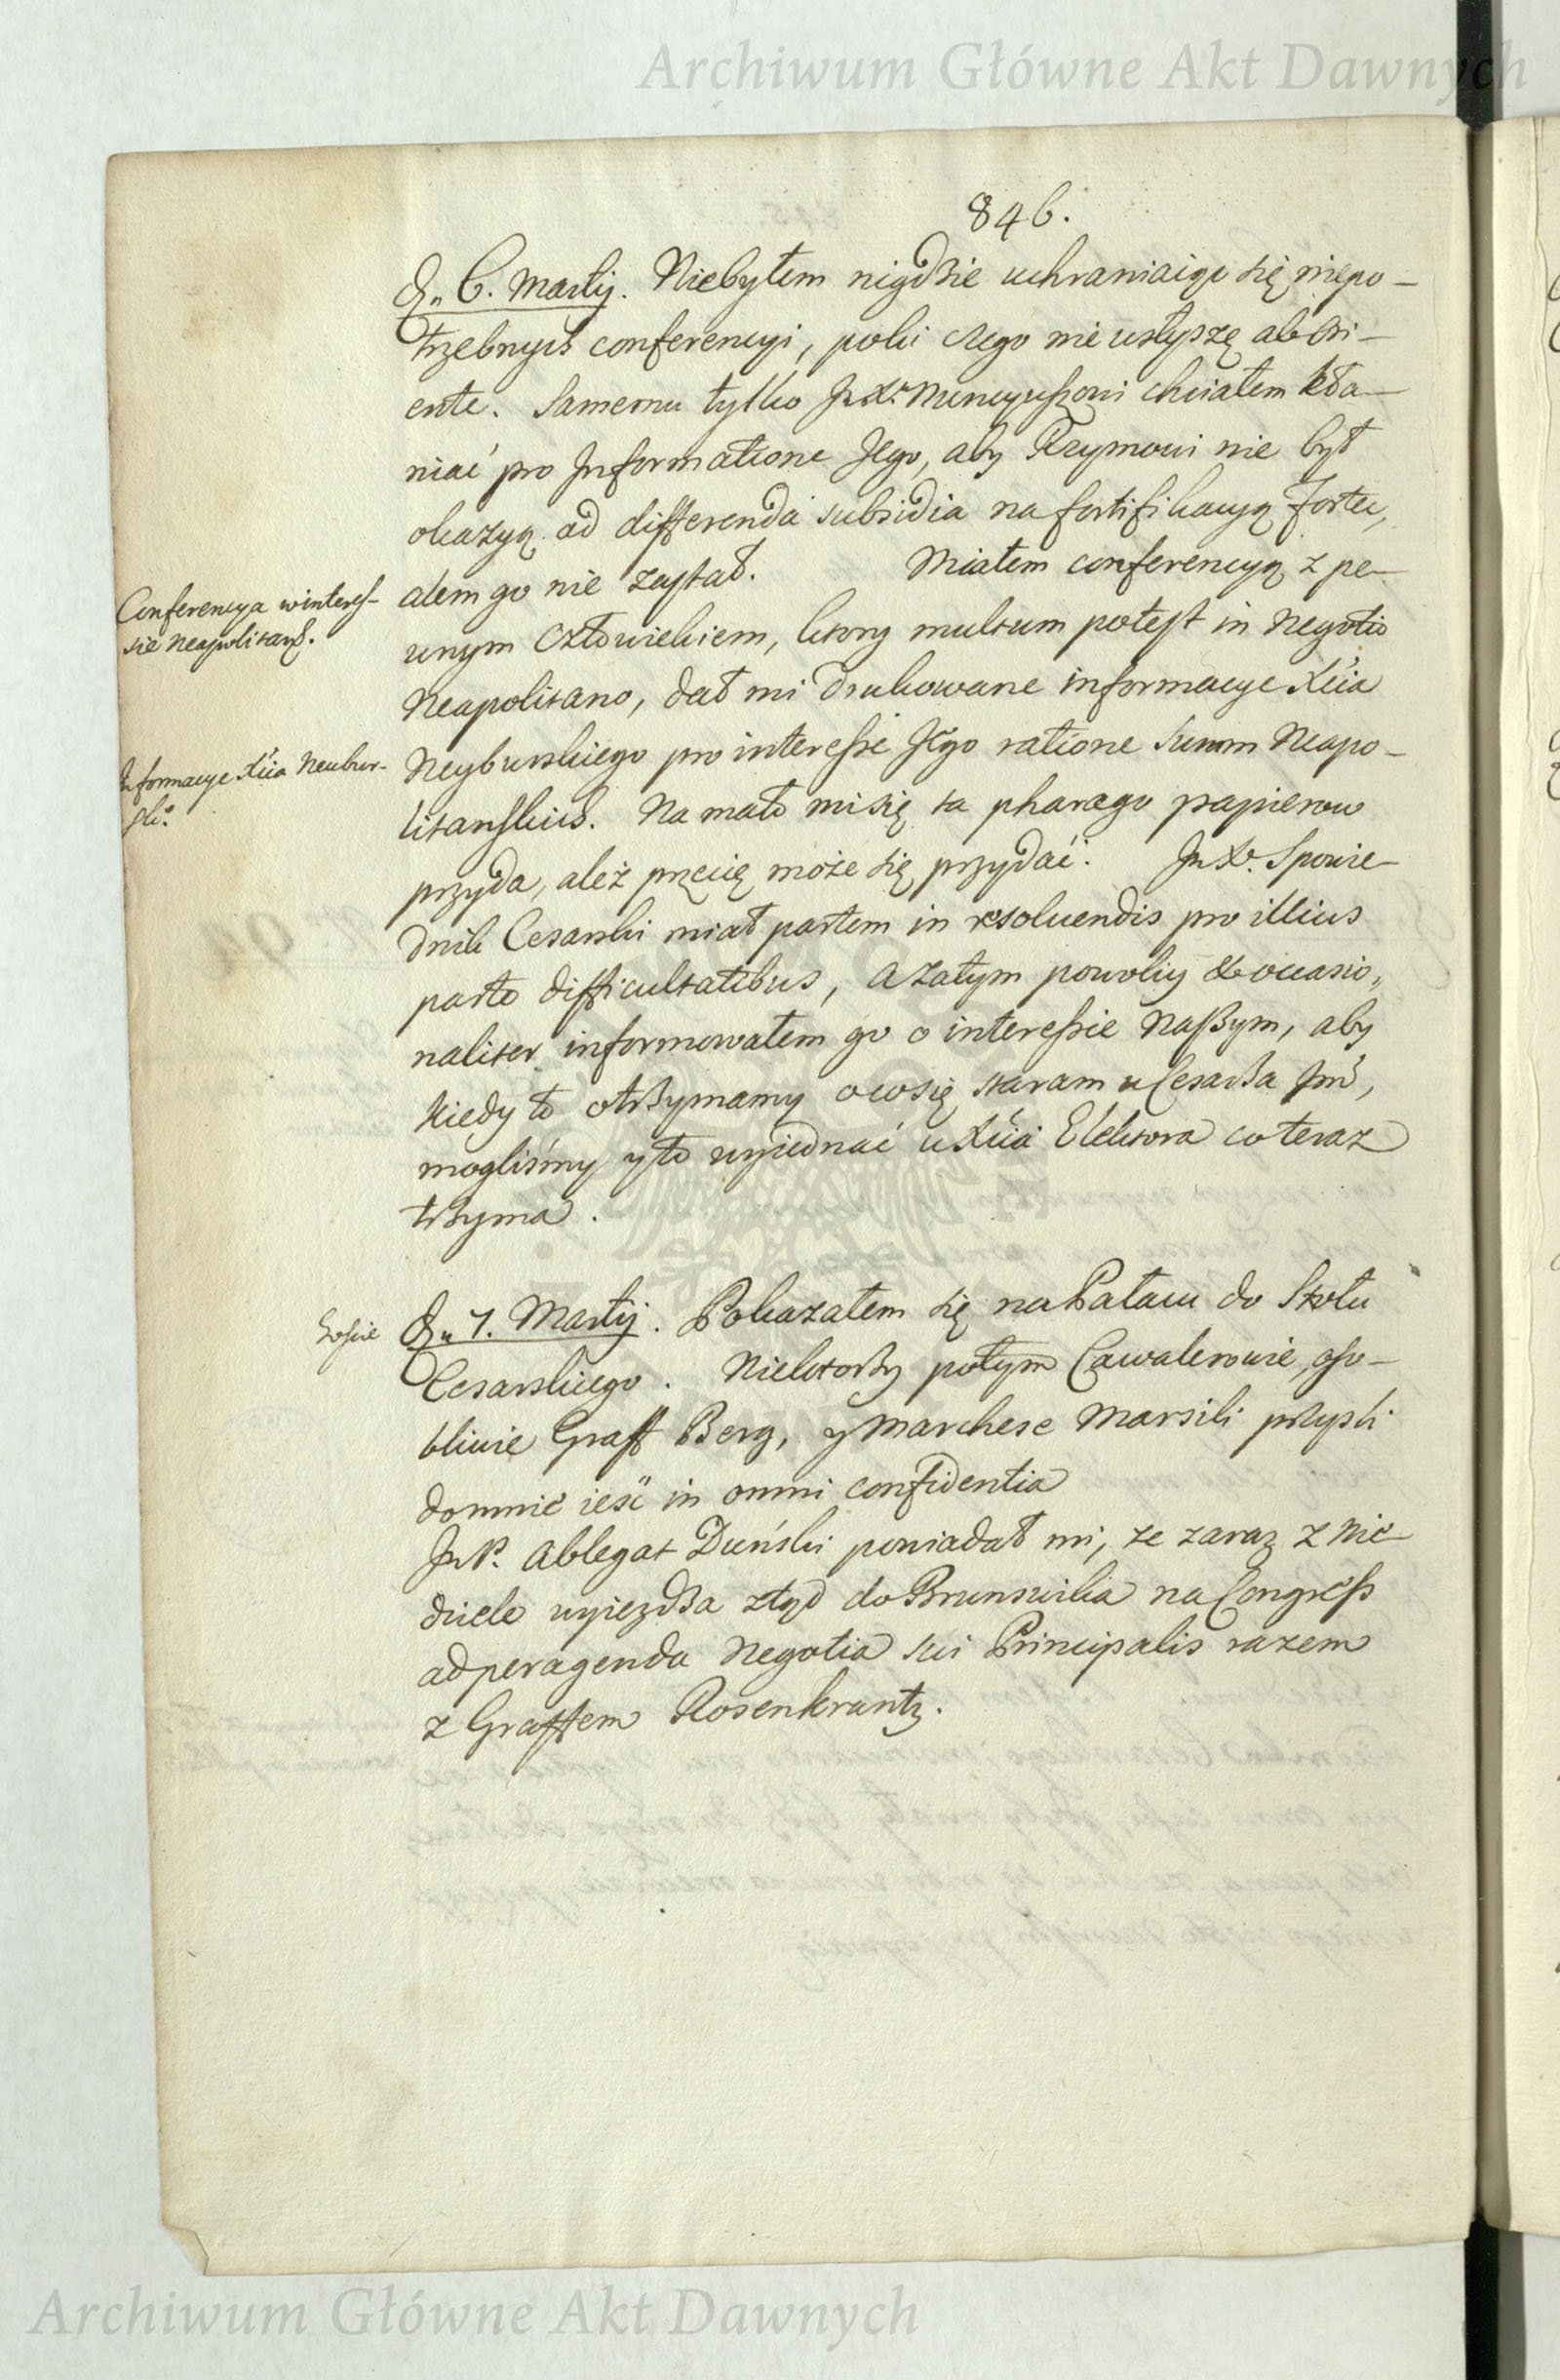 Archiwum Główne Akt Dawnych
846.
D„ 6. Martij. Niebyłem nigdzie uchraniaiąc się niepo–
trzebnych conferencyi, poki czego nie usłyszę ab Ori–
ente. Samemu tylko Jn Xr. Nuncyuszowi chciałem kła–
niać pro Informatione Jego, aby Rzymowi nie był
okazyą ad differenda subsidia na fortifikacyą fortec,
alem go nie zastał. Miałem conferencyą z pe–
Conferencya w interes–
sie Neapolitans.
wnym człowiekiem, ktory multum potest in Negotio
Neapolitano, dał mi drukowane informacye Xcia
Informacye Xcia Neubur–
ski.
Neyburskiego pro interesse Jego ratione Summ Neapo–
litanskich. Na mało mi się ta pharago papierow
przyda, ależ przecię może się przydać. Jn Xr. Spowie–
dnik Cesarski miał partem in resoluendis pro illius
parte difficultatibus, a zatym powolij & occasio„
naliter informowałem go o interessie naszym, aby
kiedy to otrzymamy o co się staram u Cesarza Jmć,
mogliśmy y to wyiednać u Xcia Elektora co teraz
trzyma.
Goście
D„ 7. Martij. Pokazałem się na Pałacu do Stołu
Cesarskiego. Niektorzy potym Cawalerowie, oso–
bliwie Graff Berg, y Marchese Marsili przyszli
do mnie ieść in omni confidentia
Jn P. Ablegat Duński powiadał mi, że zaraz z Nie–
dziele wyiezdza ztąd do Brunswika na Congress
ad peragenda Negotia sui Principalis razem
z Graffem Rosenkrantz.
Archiwum Główne Akt Dawnych